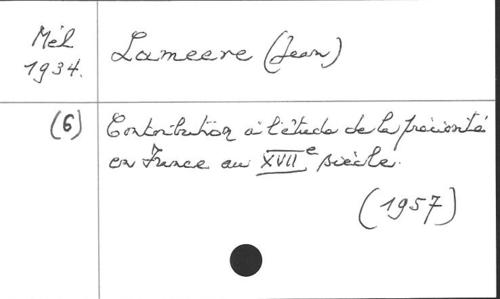 Mél
1934.
Lameere (Jean)
(6)
Contribution à l'étude de la préciosité
en France au XVIIe siècle.
(1957)